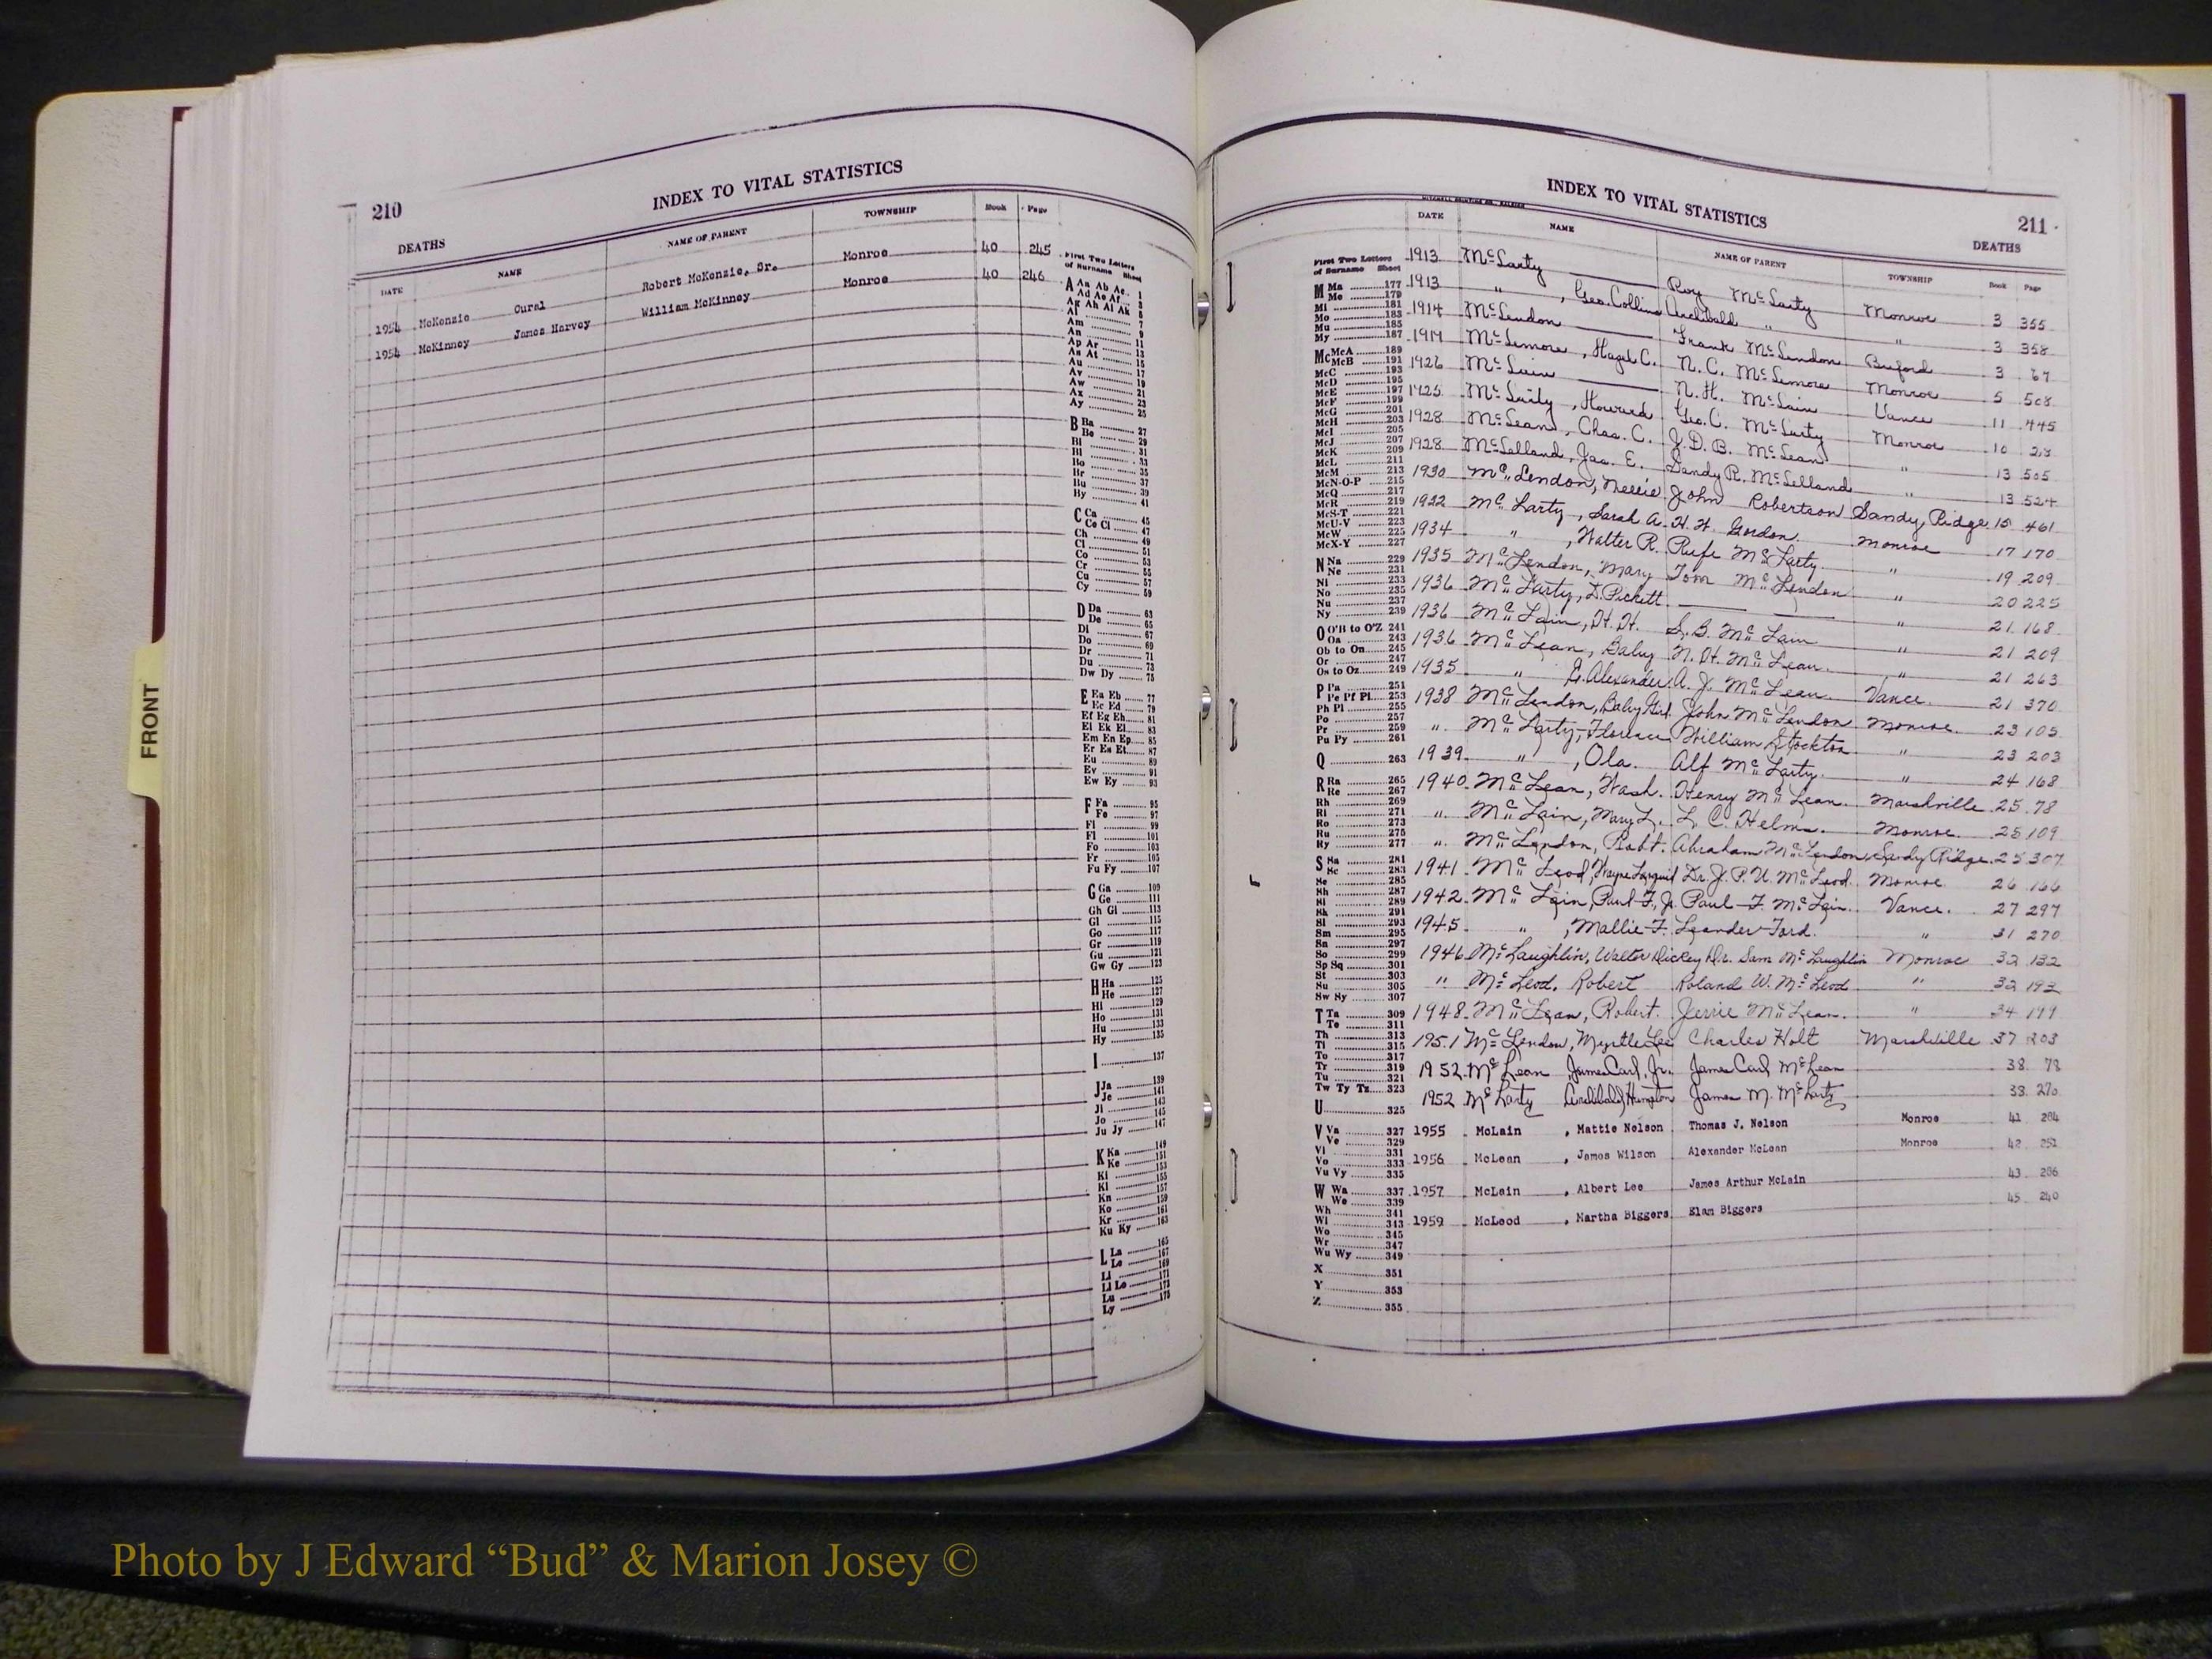 FRONT
210
INDEX TO VITAL STATISTICS
DEATHS
DATE NAME NAME OF PARENT TOWNSHIP Book Page
1954 McKenzie Cural Robert McKenzie, Sr. Monroe 40 245
1954 McKinney James Harvey William McKinney Monroe 40 246
First Two Letters
of Surname Sheet
A Aa Ab Ac 1
Ad Ae Af 3
Ag Ah Ai Ak 5
Al 7
Am 9
An 11
Ap Ar 13
As At 15
Au 17
Av 19
Aw 21
Ax 23
Ay 25
B Ba 27
Be 29
Bi 31
Bl 33
Bo 35
Br 37
Bu 39
By 41
C Ca 45
Ce Ci 47
Ch 49
Cl 51
Co 53
Cr 55
Cu 57
Cy 59
D Da 63
De 65
Di 67
Do 69
Dr 71
Du 73
Dw Dy 75
E Ea Eb 77
Ec Ed 79
Ef Eg Eh 81
Ei Ek El 83
Em En Ep 85
Er Es Et 87
Eu 89
Ev 91
Ew Ey 93
F Fa 95
Fe 97
Fi 99
Fl 101
Fo 103
Fr 105
Fu Fy 107
G Ga 109
Ge 111
Gh Gi 113
Gl 115
Go 117
Gr 119
Gu 121
Gw Gy 123
H Ha 125
He 127
Hi 129
Ho 131
Hu 133
Hy 135
I 137
J Ja 139
Je 141
Ji 143
Jo 145
Ju Jy 147
K Ka 149
Ke 151
Ki 153
Kl 155
Kn 157
Ko 159
Kr 161
Ku Ky 163
L La 165
Le 167
Li 169
Ll Lo 171
Lu 173
Ly 175
INDEX TO VITAL STATISTICS
211
DEATHS
DATE NAME NAME OF PARENT TOWNSHIP Book Page
First Two Letters
of Surname Sheet
M Ma 177
Me 179
Mi 181
Mo 183
Mu 185
My 187
Mc McA 189
McB 191
McC 193
McD 195
McE 197
McF 199
McG 201
McH 203
McI 205
McJ 207
McK 209
McL 211
McM 213
McN-O-P 215
McQ 217
McR 219
McS-T 221
McU-V 223
McW 225
McX-Y 227
N Na 229
Ne 231
Ni 233
No 235
Nu 237
Ny 239
O O'B to O'Z 241
Oa 243
Ob to On 245
Or 247
Os to Oz 249
P Pa 251
Pe Pf Pl 253
Ph Pi 255
Po 257
Pr 259
Pu Py 261
Q 263
R Ra 265
Re 267
Rh 269
Ri 271
Ro 273
Ru 275
Ry 277
S Sa 281
Sc 283
Se 285
Sh 287
Si 289
Sk 291
Sl 293
Sm 295
Sn 297
So 299
Sp Sq 301
St 303
Su 305
Sw Sy 307
T Ta 309
Te 311
Th 313
Ti 315
To 317
Tr 319
Tu 321
Tw Ty Tz 323
U 325
V Va 327
Ve 329
Vi 331
Vo 333
Vu Vy 335
W Wa 337
We 339
Wh 341
Wi 343
Wo 345
Wr 347
Wu Wy 349
X 351
Y 353
Z 355
1913 McLarty Roy McLarty Monroe 3 355
1913 " , Geo. Collins Archibald " " 3 358
1914 McLendon Frank McLendon Buford 3 67
1917 McLemore, Hazel C. N. C. McLemore Monroe 5 508
1926 McLain N. H. McLain Vance 11 445
1925 McLarty, Howard Geo. C. McLarty Monroe 10
1928 McLean, Chas. C. J. D. B. McLean " 13 505
1928 McLelland, Jas. E. Sandy R. McLelland " 13 524
1930 McLendon, Nellie John Robertson Sandy Ridge 15 461
1932 McLarty, Sarah A. H. H. Gordon Monroe 17 170
1934 " , Walter R. Rufe McLarty " 19 209
1935 McLendon, Mary Tom McLendon " 20 225
1936 McLarty, D. Pickett " 21 168
1936 McLain, H. H. S. B. McLain " 21 209
1936 McLean, Baby N. H. McLean " 21 263
1935 " E. Alexander A. J. McLean Vance 21 370
1938 McLendon, Baby Girl John McLendon Monroe 23 105
" McLarty, Florence William Stockton " 23 203
1939 " , Ola. Alf McLarty " 24 168
1940 McLean, Wash. Henry McLean Marshville 25 78
" McLain, Mary L. L. C. Helms Monroe 25 109
" McLendon, Robt. Abraham McLendon Sandy Ridge 25 307
1941 McLeod, Wayne Dr. J. P. U. McLeod Monroe 26 166
1942 McLain, Paul F., Jr. Paul F. McLain Vance 27 297
1945 " , Mallie F. Leander Ford " 31 270
1946 McLaughlin, Walter Dickey Dr. Sam McLaughlin Monroe 32 132
" McLeod, Robert Roland W. McLeod " 32 193
1948 McLean, Robert. Jerrie McLean " 34 199
1951 McLendon, Myrtle Lee Charles Holt Marshville 37 203
1952 McLean James Carl, Jr. James Carl McLean 38 78
1952 McLarty Archibald Hampton James M. McLarty 38 270
1955 McLain , Mattie Nelson Thomas J. Nelson Monroe 41 284
1956 McLean , James Wilson Alexander McLean Monroe 42 251
1957 McLain , Albert Lee James Arthur McLain 43 286
1959 McLeod , Martha Biggers Elam Biggers 45 240
Photo by J Edward “Bud” & Marion Josey ©